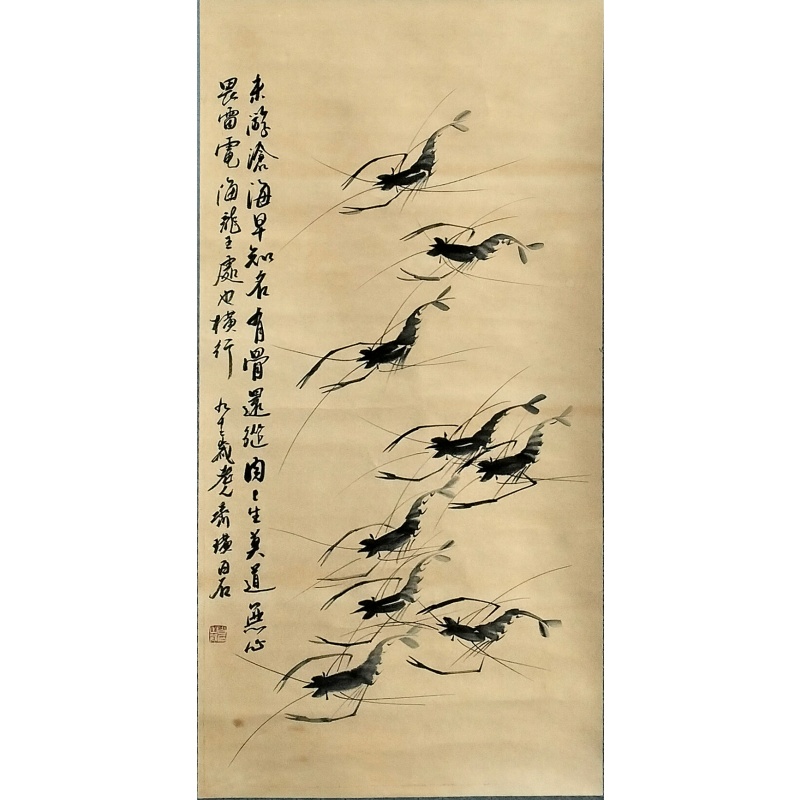 未游滄海早知名有骨還從肉上生莫道無心
畏雷電海龍王處也橫行 九十歲老人齊璜白石